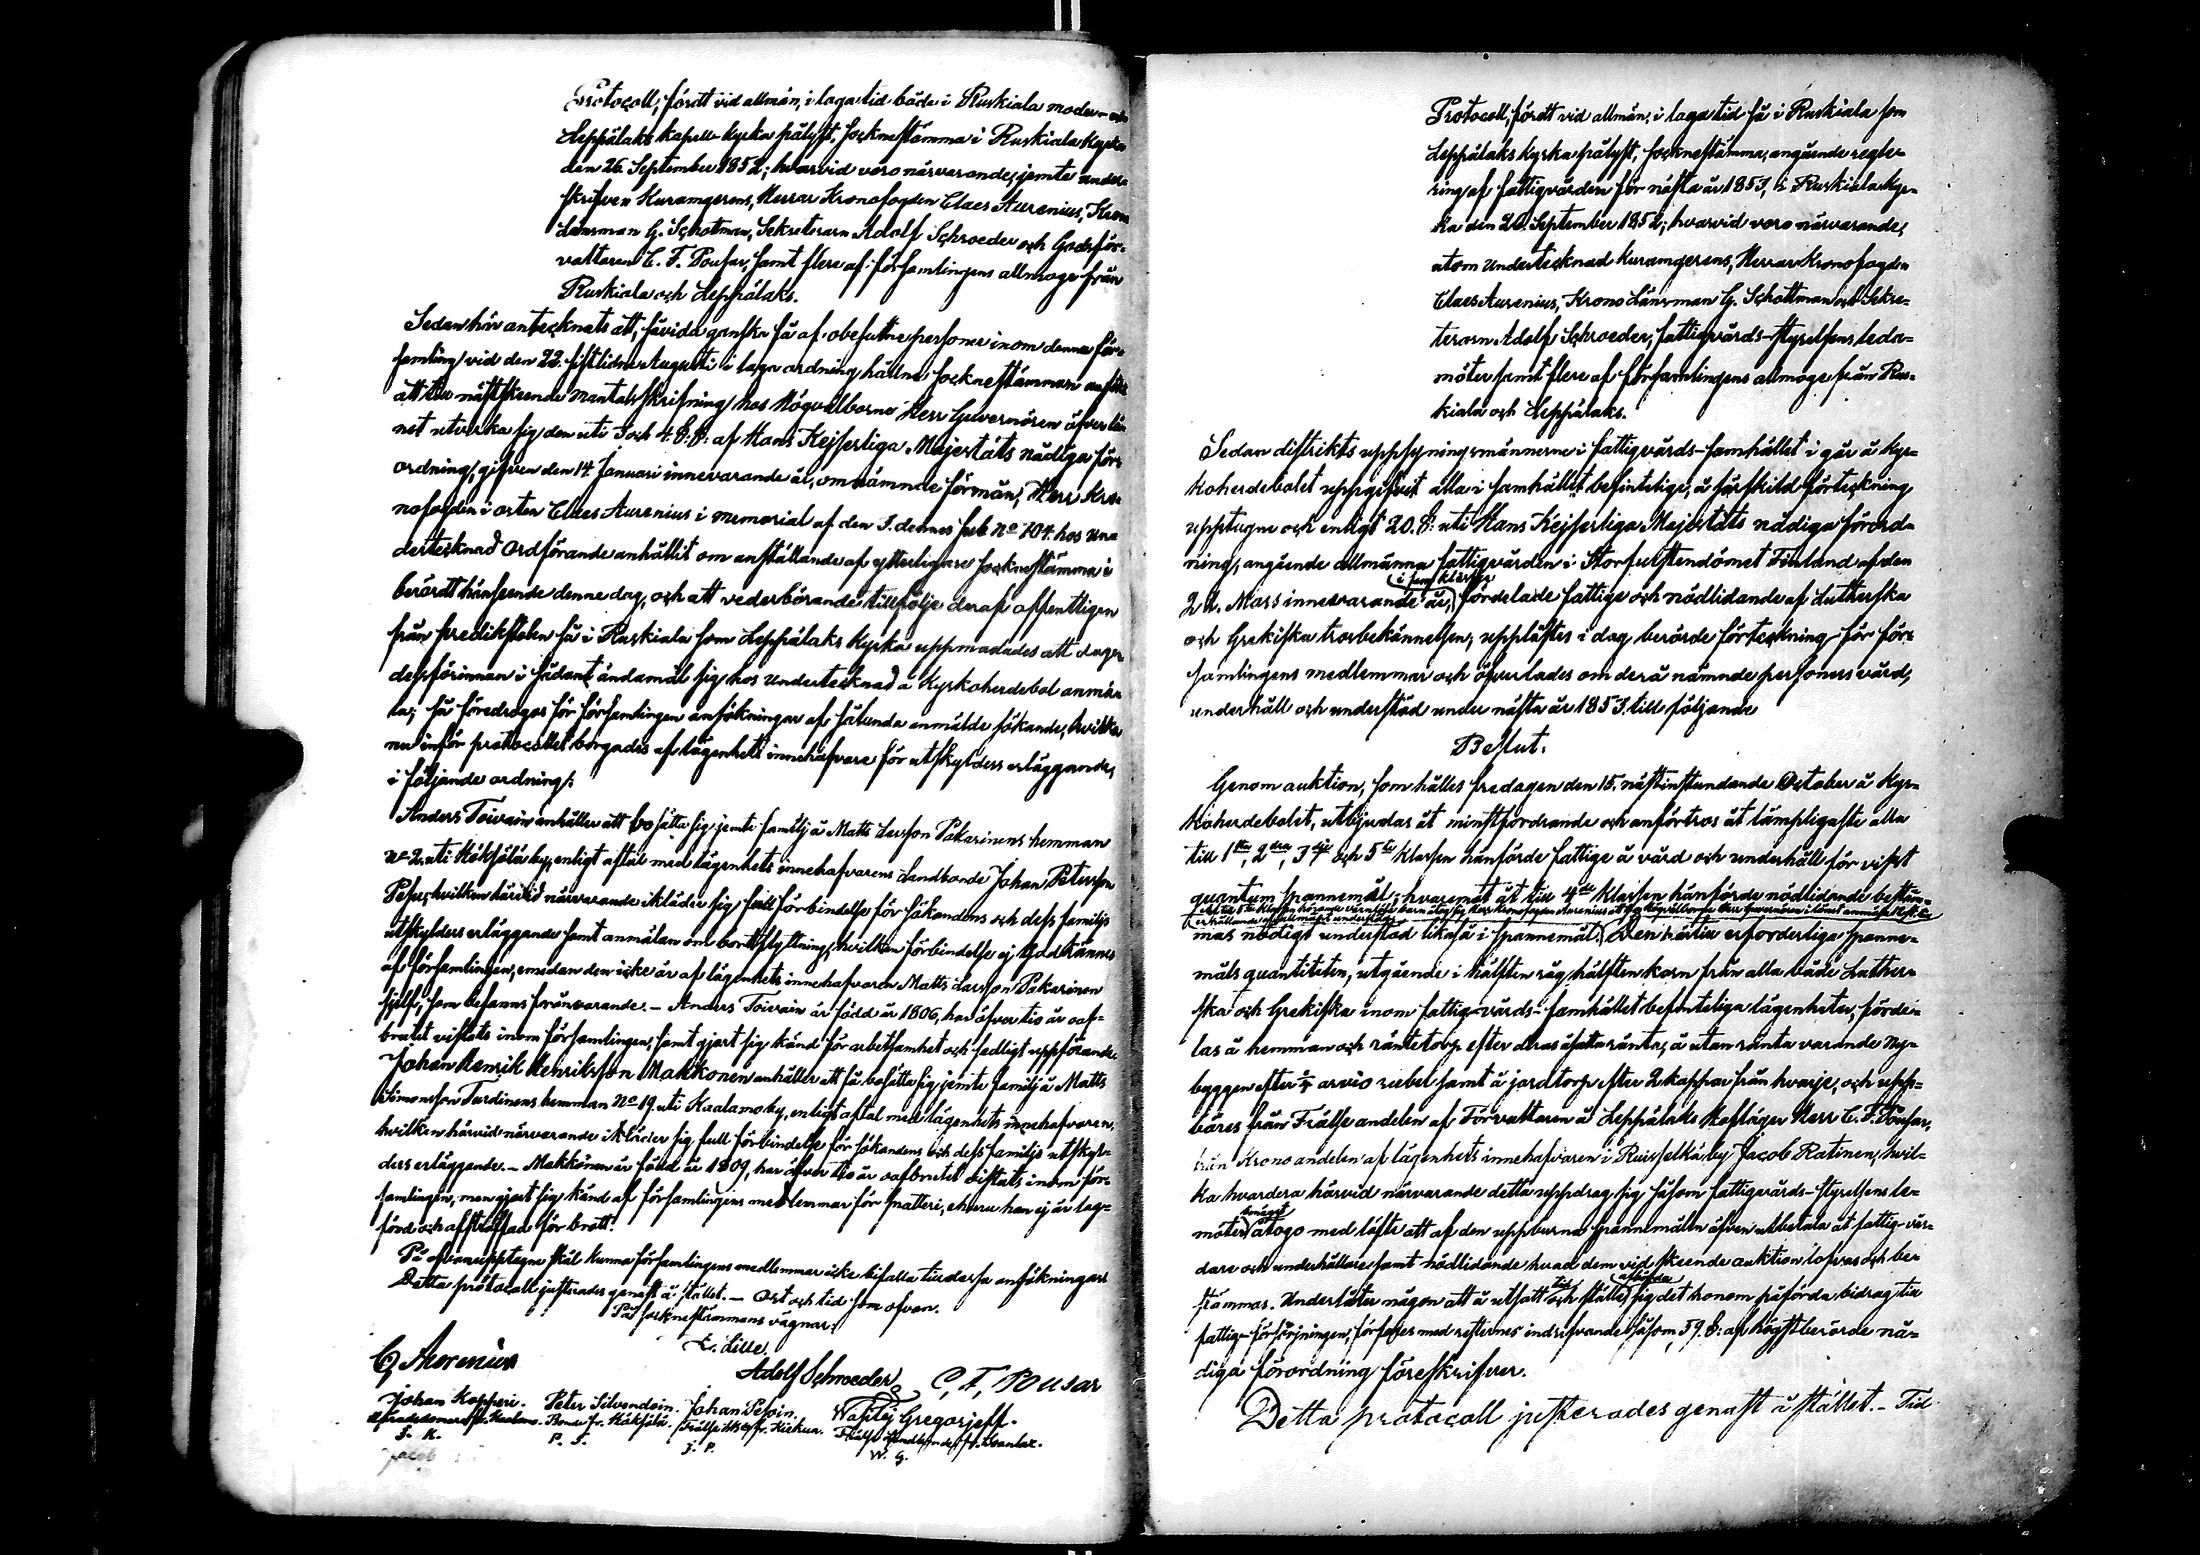 Protocoll, fördt vid allmän, i laga tid både i Ruskiala moder- och
Leppälaks kapell-kyrka pålyst, sockne stämma i Ruskiala Kyrka
den 26. September 1852; hvarvid voro närvarande, jemte under-
skrifven Kuramgerens, Herrar Kronofogden Claes Aurenius, Krono
Länsman G. Schottman, Sekreteraren Adolf Schroeder och Godsför-
valtaren C. F. Pousar, samt flere af församlingens allmoge från
Ruskiala och Leppälaks.
Sedan här antecknats att, såvida ganska få af obesuttne personer inom denna för-
samling vid den 22. sistlidne Augusti i laga ordning hållne sockne stämman
att till nästskeende Mantalsskrifning hos Högvälborne Herr Guvernören öfver lä-
net utverka sig den uti 3 och 4. §.§. af Hans Kejserliga Majestäts nådiga för-
ordning, gifven den 14 Januari innevarande år, omnämnde förmån, Herr Kro-
nofogden i orten Claes Aurenius i memorial af den 3. dennes sub No 104. hos un-
dertecknad Ordförande anhållit om anställande af ytterligare sockne stämma i
berördt hänseende denne dag, och att vederbörande till följe deraf offentligen
från predikstolen så i Ruskiala som Leppälaks Kyrka uppmanades att dagen
dessförinnan i sådant ändamål sig hos undertecknad å Kyrkoherdebol anmä-
la; så föredrogos för församlingen ansökningar af sålunda anmälde sökande, hvilka
nu inför protocollet borgades af lägenhets innehafvare för utskylders erläggande,
i följande ordning:
Anders Toivain anhåller att bosätta sig jemte familj å Matts Larsson Pakarinens hemman
No 2. uti Kokkola by, enligt aftal med lägenhets innehafvarens Landbonde Johan Petersson
Pesu, hvilken härvid närvarande ikläder sig full förbindelse för sökandens och dess familjs
utskylders erläggande samt anmälan om bortflyttning, hvilken förbindelse ej godkännes
af församlingen, emedan den icke är af lägenhets innehafvaren Matts Larsson Pakarinen
sjelf, som befanns frånvarande. – Anders Toivain är född år 1806, har öfver tio år oaf-
brutet vistats inom församlingen, samt gjort sig känd för arbetsamhet och sedligt uppförande.
Johan Henrik Henriksson Makkonen anhåller att få bosätta sig jemte familj å Matts
Simonsson Turdinens hemman No 19. uti Kaalamo by, enligt aftal med lägenhets innehafvaren,
hvilken härvid närvarande ikläder sig full förbindelse för sökandens och dess familjs utskyl-
ders erläggande. – Makkonen är född år 1809, har öfver tio år oafbrutet vistats inom för-
samlingen, men gjort sig känd af församlingens medlemmar för snatteri, ehuru han ej är lag-
förd och afstraffad för brott.
På ofvanupptagne skäl kunna församlingens medlemmar icke bifalla till dessa ansökningar.
Detta protocoll justerades genast å stället. – Ort och tid som ofvan.
På sockne stämmans vägnar:
E. Lille.
C. Aurenius
Adolf Schroeder
C. F. Pousar
Johan Kopperi. Peter Silvendoin. Johan Pesoin. Wasilij Gregorjeff.
fr. Kaalamo. Bonde fr. Kokkola. Frälse fr. Kirkua. Frälse Landbonde fr.
J. K. P. S. J. P. W. G.
Jacob
Protocoll, fördt vid allmän, i laga tid så i Ruskiala som
Leppälaks Kyrka pålyst, sockne stämma, angående regle-
ring af fattigvården för nästa år 1853, i Ruskiala Kyr-
ka den 26. September 1852; hvarvid voro närvarande,
utom undertecknad Kuramgerens, Herrar Kronofogden
Claes Aurenius, Krono Länsman G. Schottman och Sekre-
teraren Adolf Schroeder, fattigvårds-styrelsens leda-
möter samt flere af församlingens allmoge från Rus-
kiala och Leppälaks.
Sedan distrikts uppsyningsmännerne i fattigvårds-samhället i går å Kyr-
koherdebolet uppgifvit alla i samhället befintelige, å särskild förteckning
upptagne och enligt 20. §. uti Hans Kejserliga Majestäts nådiga förord-
ning, angående allmänna fattigvården i Storfurstendömet Finland af den
i fem klasser
22. Mars innevarande år, fördelade fattige och nödlidande af Lutherska
och Grekiska trosbekännelsen; upplästes i dag berörde förteckning för för-
samlingens medlemmar och öfverlades om derå nämnde personers vård,
underhåll och understöd under nästa år 1853. till följande
Beslut:
Genom auktion, som hålles fredagen den 15. nästinstundande October å Kyr-
koherdebolet, utbjudas åt minstfordrande och anförtros åt lämpligaste alla
till 1sta, 2dra, 3dje och 5te klassen hänförde fattige å vård och underhåll för visst
quantum spannemål; hvaremot åt till 4de klassen hänförde nödlidande bestäm-
mas nödigt understöd likaså i spannemål. Den härtill erforderliga spanne-
måls quantiteten, utgående i hälften råg, hälften korn från alla både Luther-
ska och Grekiska inom fattig-vårds-samhället befinteliga lägenheter, förde-
las å hemman och räntetorp efter deras åsatta ränta, å utan ränta varande Ny-
byggen efter arvio rubel samt å jordtorp efter 2 kappar från hvarje, och upp-
bäres från Frälse andelen af Förvaltaren å Leppälaks Hofläger Herr C. F. Pousar,
från Krono andelen af lägenhets innehafvaren i Ruisselkä by Jacob Ratinen, hvil-
ka hvardera härvid närvarande detta uppdrag sig såsom fattigvårds-styrelsens le-
möter åtogo med löfte att af den uppburna spannemålen äfven utbetala åt fattig-vår-
dare och underhållare samt nödlidande hvad dem vid skeende auktion lofvas och be-
stämmas. Underlåter någon att å utsatt tid och ställe afbörda sig det honom påförda bidrag till
fattig-försörjningen, förfares med resternes indrifvande såsom 59. §. af högstberörde nå-
diga förordning föreskrifver.
Detta protocoll justerades genast å stället. – Tid